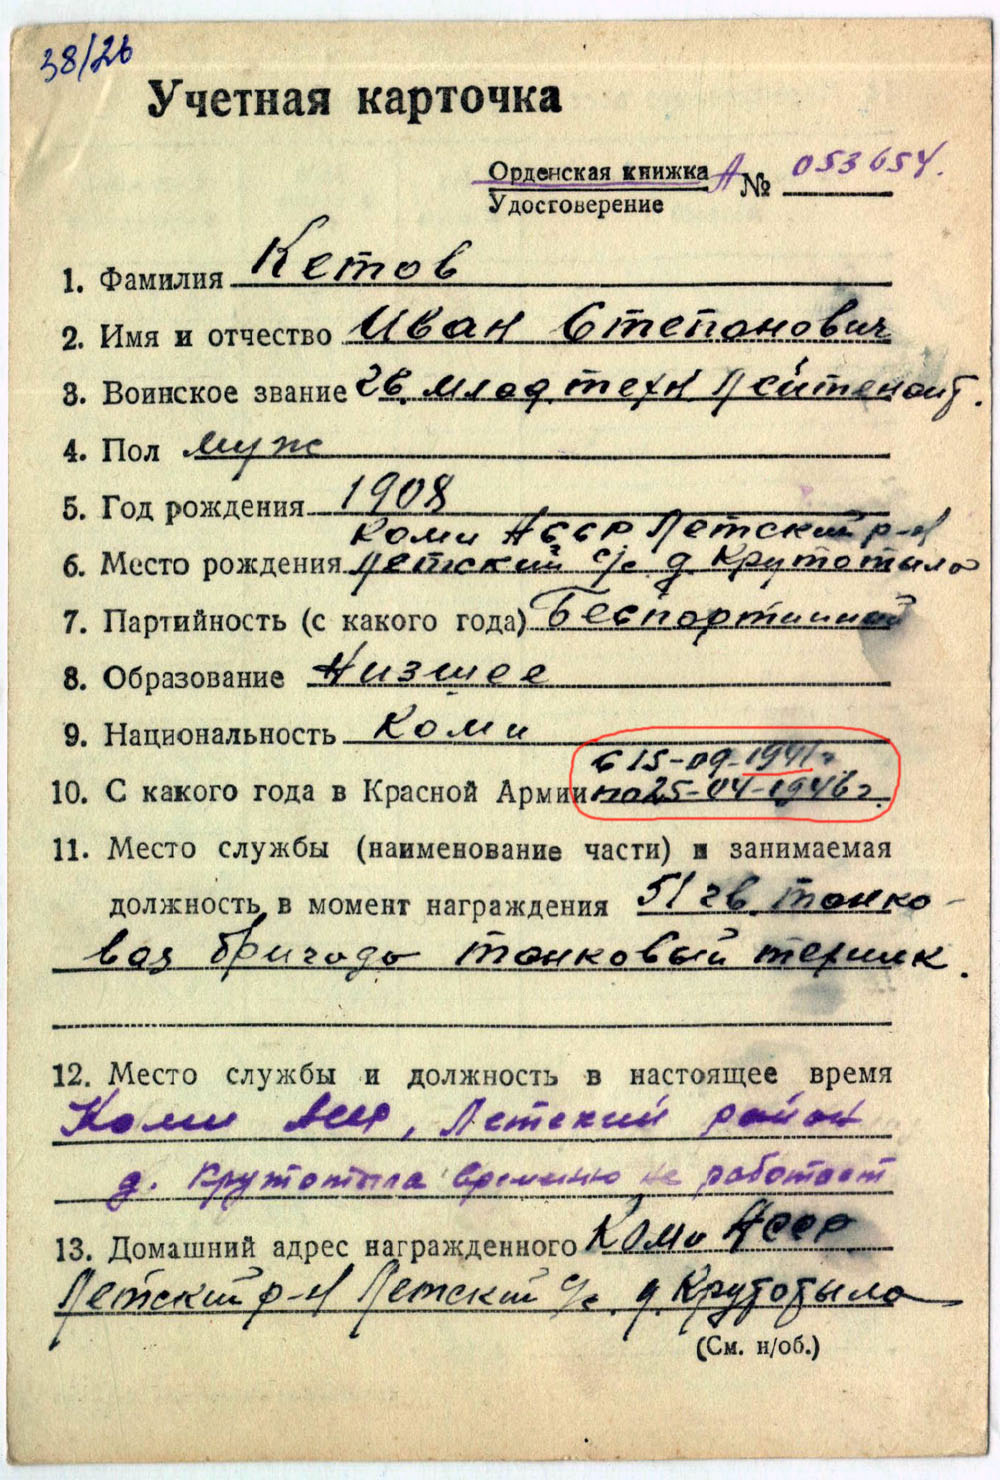 38/26
Учетная карточка
Орденская книжка А № 053654.
Удостоверение
1. Фамилия Кетов
2. Имя и отчество Иван Степанович
3. Воинское звание гв. млад. техн лейтенант.
4. Пол муж
5. Год рождения 1908
Коми АССР Летский р-н
6. Место рождения Летский с/с. д. Крутотыла
7. Партийность (с какого года) Беспартийный
8. Образование Низшее
9. Национальность Коми
с 15-09-1941 г
10. С какого года в Красной Армии по 25-04-1946 г.
11. Место службы (наименование части) и занимаемая
должность в момент награждения 51 гв. танко-
вая бригада танковый техник.
12. Место службы и должность в настоящее время
Коми АССР, Летский район
д. Крутотыла временно не работает
13. Домашний адрес награжденного Коми АССР
Летский р-н Летский с/с. д. Крутотыла
(См. н/об.)